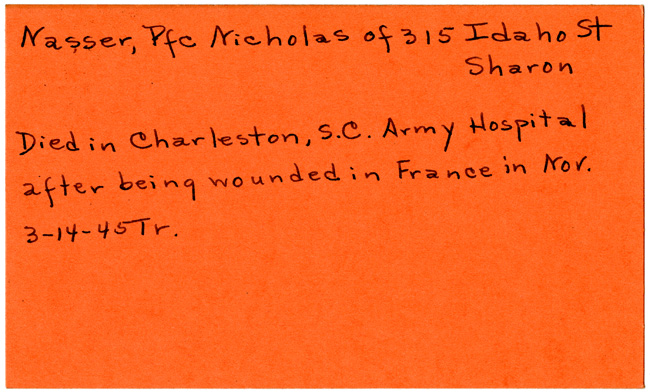 Nasser, Pfc Nicholas of 315 Idaho St
Sharon
Died in Charleston, S.C. Army Hospital
after being wounded in France in Nov.
3-14-45 Tr.